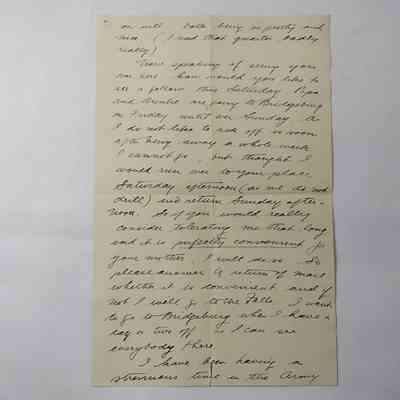 on with both being so pretty and
nice (I need that quarter badly
really)
Now speaking of seeing you
how would you like to
see a fellow this Saturday. Papa
and are going to Bridgeburg
on Friday until over Sunday
I do not like to ask off so soon
after being away a whole week
I cannot go, but thought I
would run over to your place
Saturday afternoon (as we do not
drill) and return Sunday after-
noon. So if you would really
consider tolerating me that long
and it is perfectly convenient for
your mother, I will do so. So
please answer by return of mail
whether it is convenient and if
not I will go to the Falls. I want
to go to Bridgeburg when I have a
day or two off so I can see
everybody there.
I have been having a
strenuous time in the Army